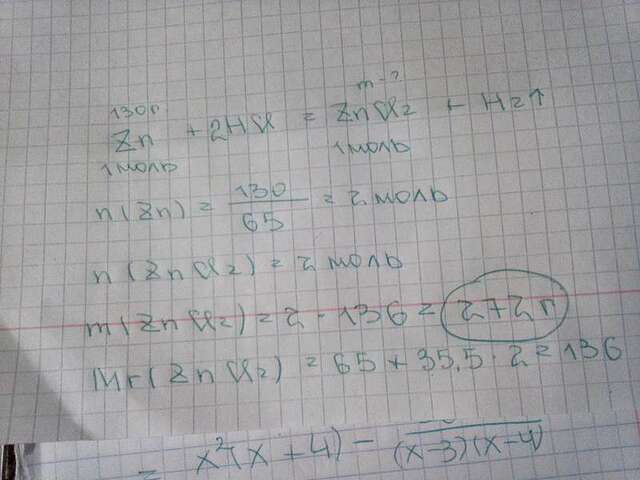 130г m-?
Zn + 2HCl = ZnCl2 + H2↑
1моль 1моль
n(Zn) = 130/65 = 2 моль
n(ZnCl2) = 2 моль
m(ZnCl2) = 2 · 136 = 272 г
Mr(ZnCl2) = 65 + 35,5 · 2 = 136
= x²(x + 4) - (x-3)(x-4)